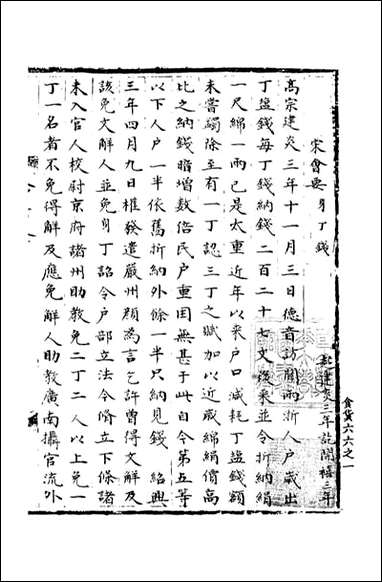 宋會要 身丁錢
起建炎三年訖開禧三年
高宗建炎三年十一月三日德音訪聞兩浙人户歲出
丁鹽錢每丁錢納錢二百二十七文後來並令折納絹
一尺綿一兩已是太重近年以來户口減耗丁鹽錢額
未嘗蠲除至有一丁認三丁之賦加以近歲綿絹價高
比之納錢暗增數倍民户重困無甚于此自今第五等
以下人户一半依舊折納外餘一半只納見錢 紹興
三年四月九日權發遣嚴州顔為言乞許曾得文解及
該免文解人並免身丁詔令戶部立法今脩立下條諸
未入官人校尉京府諸州助教二丁二人以上免一
丁一名者不免得解及應免解人助教廣南攝官流外
食貨六六之一